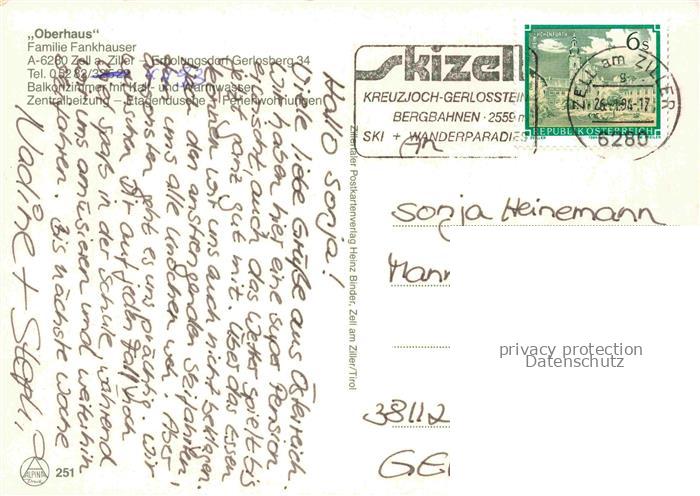 „Oberhaus“
Familie Fankhauser
A-6280 Zell a. Ziller – Erholungsdorf Gerlosberg 34
Tel. 0 52 82/
Balkonzimmer mit Kalt- und Warmwasser
Zentralheizung – Etagendusche – Ferienwohnungen
skizell
KREUZJOCH-GERLOSSTEIN
BERGBAHNEN · 2559 m
SKI + WANDERPARADIES
STIFT
6 S
REPUBLIK ÖSTERREICH
ZELL am ZILLER
6280
An
Sonja Heinemann
Mann
38112
GE
Hallo Sonja!
Viele liebe Grüße aus Österreich.
Wir haben hier eine super Pension
erwischt, auch das Wetter spielt bis
jetzt ganz gut mit. Über das Essen
können wir uns auch nicht beklagen.
Von den anstrengenden Skifahrten,
tun uns alle Knochen weh. Aber
ansonsten geht es uns prächtig. Wir
wünschen Dir auf jeden Fall noch
viel Spaß in der Schule während
wir uns amüsieren und weiterhin
Skifahren. Bis nächste Woche
Nadine + Steph.
Zillertaler Postkartenverlag Heinz Binder, Zell am Ziller/Tirol
ALPINA
251
privacy protection
Datenschutz